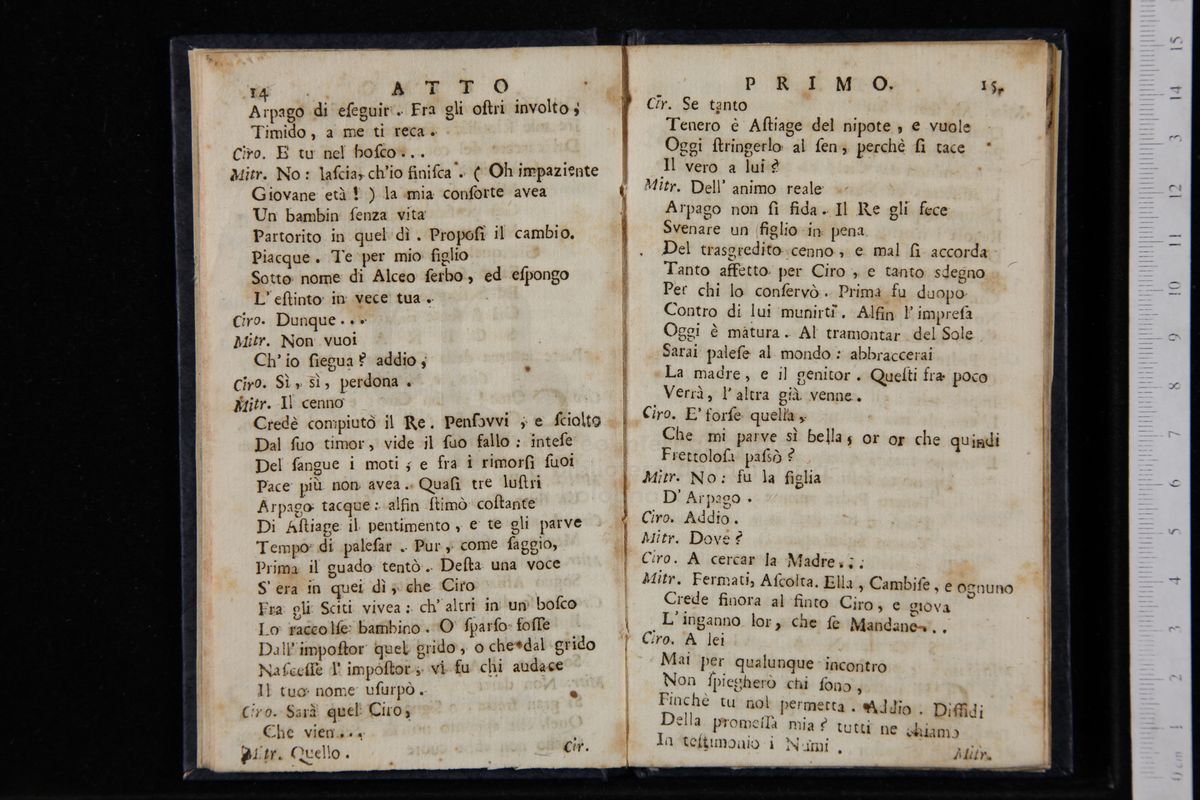 14 ATTO
Arpago di eſeguir. Fra gli oſtri involto,
Timido, a me ti reca.
Ciro. E tu nel boſco...
Mitr. No: laſcia, ch'io finiſca. (Oh impaziente
Giovane età!) la mia conſorte avea
Un bambin ſenza vita
Partorito in quel dì. Propoſi il cambio.
Piacque. Te per mio figlio
Sotto nome di Alceo ſerbo, ed eſpongo
L'eſtinto in vece tua.
Ciro. Dunque...
Mitr. Non vuoi
Ch'io ſiegua? addio,
Ciro. Sì, sì, perdona.
Mitr. Il cenno
Credè compiutò il Re. Penſovvi, e ſciolto
Dal ſuo timor, vide il ſuo fallo: inteſe
Del ſangue i moti, e fra i rimorſi ſuoi
Pace più non avea. Quaſi tre luſtri
Arpago tacque: alfin ſtimò coſtante
Di Aſtiage il pentimento, e te gli parve
Tempo di paleſar. Pur, come ſaggio,
Prima il guado tentò. Deſta una voce
S'era in quei dì, che Ciro
Fra gli Sciti vivea: ch'altri in un boſco
Lo raccolſe bambino. O ſparſo foſſe
Dall'impoſtor quel grido, o che dal grido
Naſceſſe l'impoſtor, vi fu chi audace
Il tuo nome uſurpò.
Ciro. Sarà quel Ciro,
Che vien...
Mitr. Quello.
Cir.
PRIMO. 15.
Cir. Se tanto
Tenero è Aſtiage del nipote, e vuole
Oggi ſtringerlo al ſen, perchè ſi tace
Il vero a lui?
Mitr. Dell'animo reale
Arpago non ſi fida. Il Re gli fece
Svenare un figlio in pena
Del trasgredito cenno, e mal ſi accorda
Tanto affetto per Ciro, e tanto sdegno
Per chi lo conſervò. Prima fu duopo
Contro di lui munirti. Alfin l'impreſa
Oggi è matura. Al tramontar del Sole
Sarai paleſe al mondo: abbraccerai
La madre, e il genitor. Queſti fra poco
Verrà, l'altra già venne.
Ciro. E' forſe quella,
Che mi parve sì bella, or or che quindi
Frettoloſa paſsò?
Mitr. No: fu la figlia
D'Arpago.
Ciro. Addio.
Mitr. Dove?
Ciro. A cercar la Madre...
Mitr. Fermati, Aſcolta. Ella, Cambiſe, e ognuno
Crede finora al finto Ciro, e giova
L'inganno lor, che ſe Mandane...
Ciro. A lei
Mai per qualunque incontro
Non ſpiegherò chi ſono,
Finchè tu nol permetta. Addio. Diffidi
Della promeſſa mia? tutti ne chiamo
In teſtimonio i Numi.
Mitr.